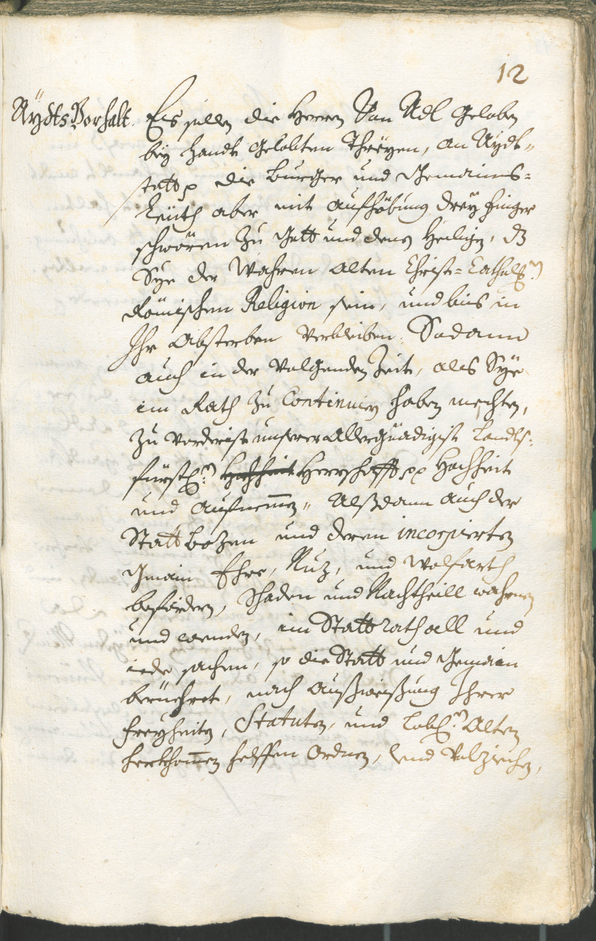 12
Aÿdts Vorhalt. Eß sollen die Herren Von Adl geloben
beÿ handt gelobten threÿen, an Aÿdt-
statt p die burger und Gemains-
Leüth aber mit aufhöbung dreÿ finger
schwören zu Gott und denen Heiligen, dz
Sÿe der wahren alten Christ-Catholl:n
Römischen Religion sein, und biß in
Ihr absterben verbleiben. Sodann
auch in der volgenden Zeit, alß Sÿe
im Rath zu Continuiern haben mechten,
zu vorderist unsrer allergnädigist Landts-
fürstl:n Herrschafft pp Hochheit
und aufnemmen, alßdann auch der
Statt Bozen und deren incorpierten
Gmain Ehre, Nuz, und wolfarth
befördern, Schaden und Nachtheill wahrnen
und wenden, im Statt rath all und
iede sachen, so die Statt und Gemain
berüehret, nach außweißung Ihrer
freÿheiten, Statuten, und lobl:n alten
herkhommen helffen ordnen, und volziechen,